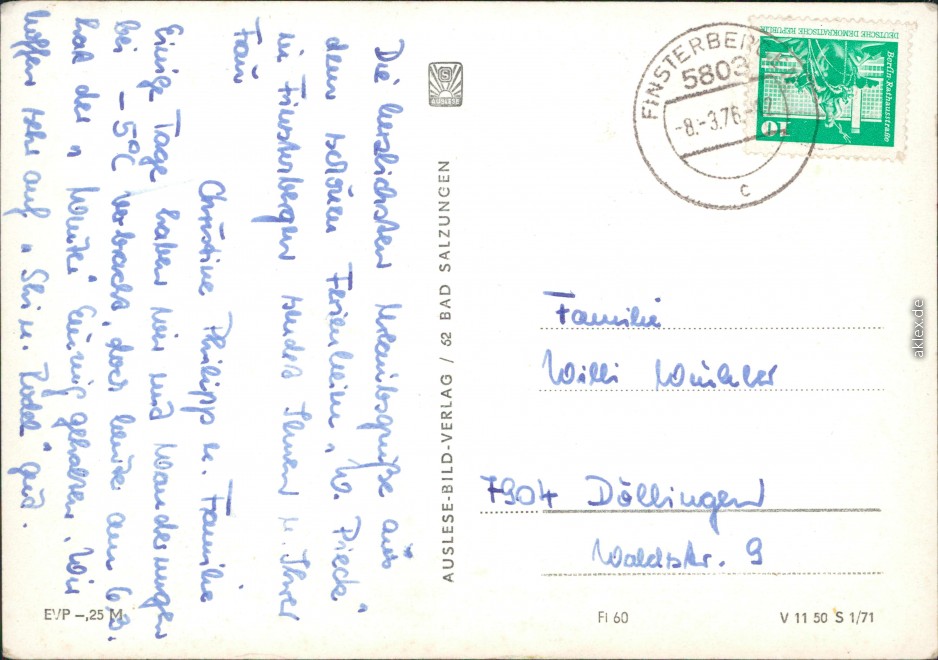 Die herzlichsten Urlaubsgrüße aus
dem schönen Ferienheim „W. Pieck"
in Finsterbergen sendet Ihnen u. Ihrer
Fam.
Christine Philipp u. Familie
Einige Tage haben wir mit Wanderungen
bei -5°C verbracht, doch heute am 6.3.
hat der „ Winter" Einzug gehalten. Wir
hoffen sehr auf „ Ski u. Rodel" gut.
EVP -,25 M
AUSLESE
AUSLESE-BILD-VERLAG / 62 BAD SALZUNGEN
FINSTERBERGEN
5803
-8.-3.76.
c
DEUTSCHE DEMOKRATISCHE REPUBLIK
Berlin, Rathausstraße
10
Familie
Willi Winkler
7904 Döllingen
Waldstr. 9
FI 60
V 11 50 S 1/71
aklex.de